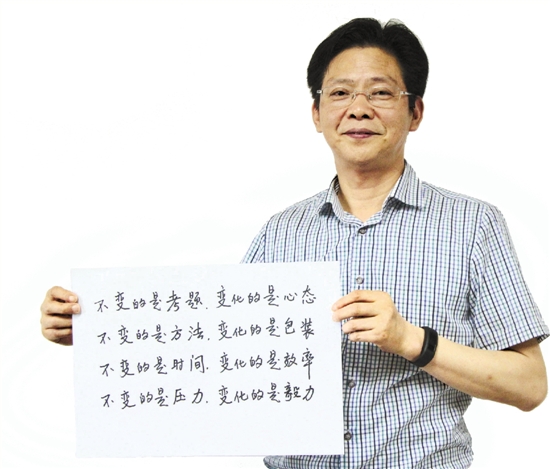 不变的是考题、变化的是心态
不变的是方法、变化的是包装
不变的是时间、变化的是效率
不变的是压力、变化的是毅力